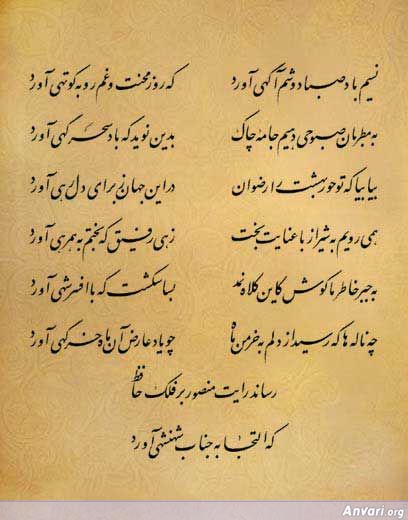 نسیم باد صبا دوشم آگهی آورد که روز محنت و غم رو به کوتهی آورد
به مطربان صبوحی دهیم جامهٔ چاک بدین نوید که باد سحرگهی آورد
بیا بیا که تو حور بهشت را رضوان در این جهان ز برای دل رهی آورد
همی رویم به شیراز با عنایت بخت زهی رفیق که بختم به همرهی آورد
به جبر خاطر ما کوش کاین کلاه نمد بسا شکست که با افسر شهی آورد
چه ناله‌ها که رسید از دلم به خرمن ماه چو یاد عارض آن ماه خرگهی آورد
رساند رایت منصور بر فلک حافظ
که التجا به جناب شهنشهی آورد
Anvari.org